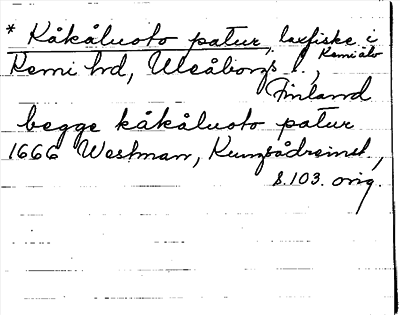 * Kåkåluoto patur, laxfiske i
Kemi älv
Kemi hd, Uleåborgs l.,
Finland
begge kåkåluoto patur
1666 Westman, Kungsådreinst.,
s. 103. orig.